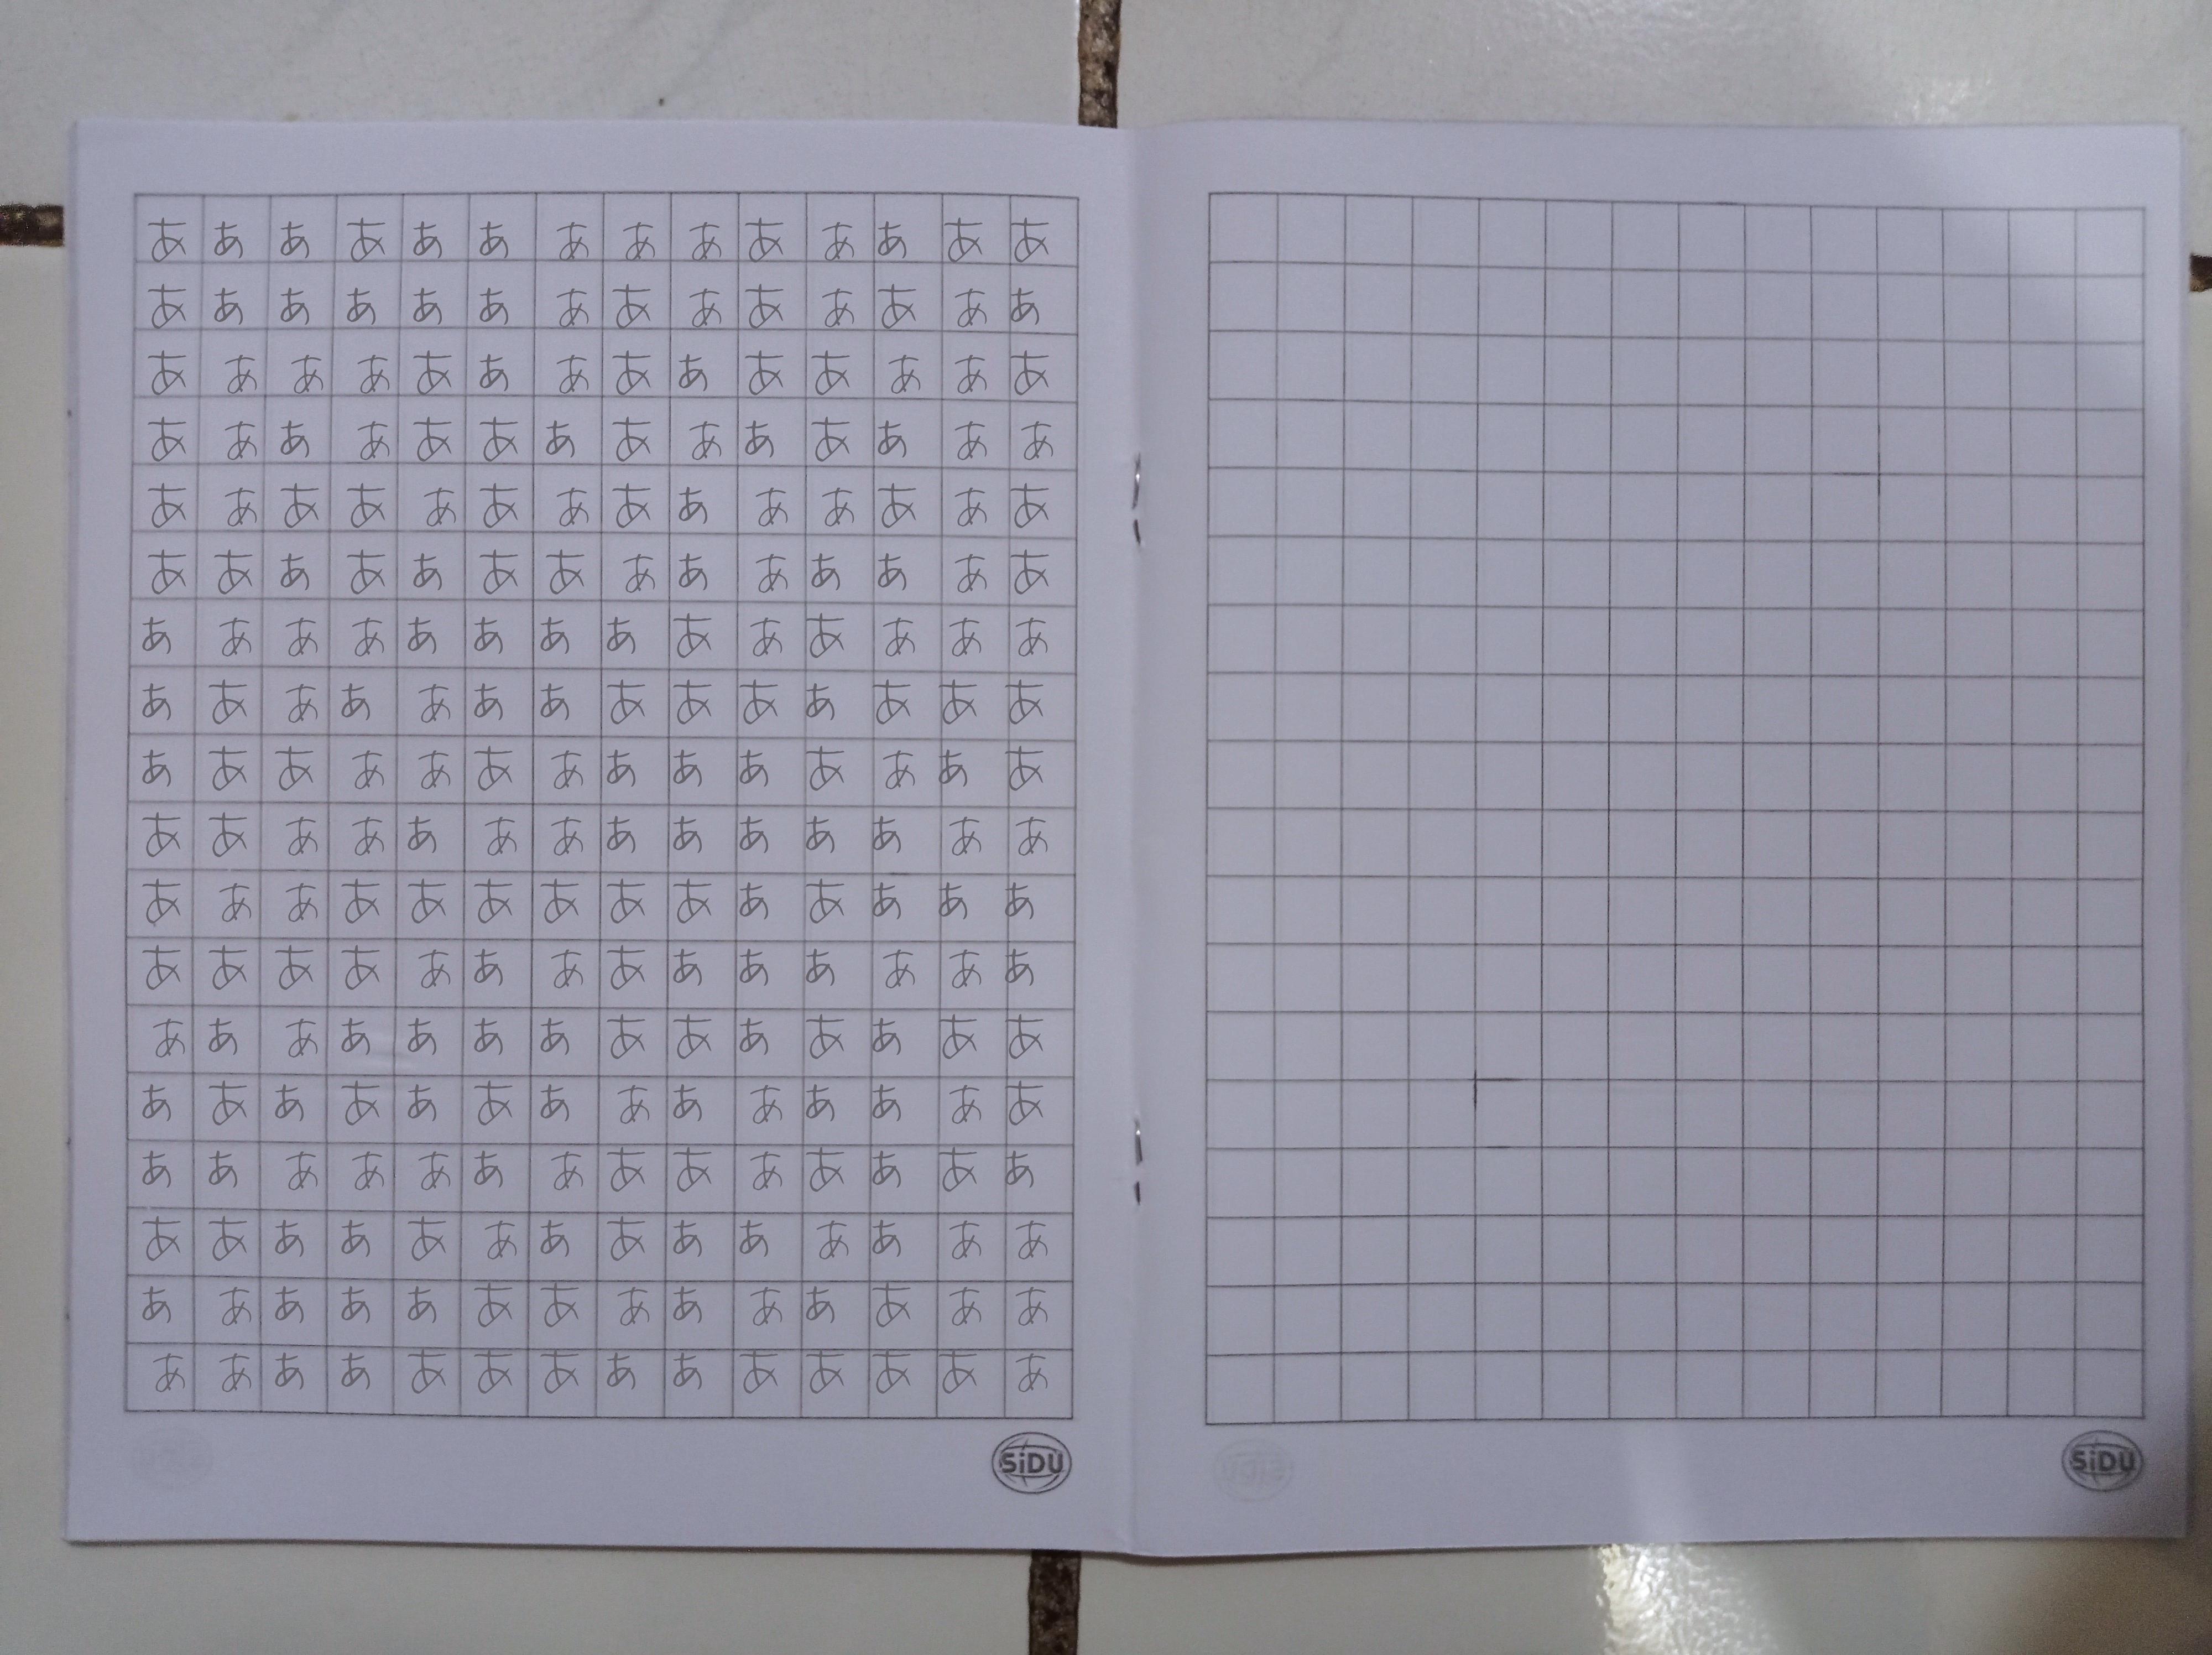 ああああああああああああああ
ああああああああああああああ
ああああああああああああああ
ああああああああああああああ
ああああああああああああああ
ああああああああああああああ
ああああああああああああああ
ああああああああああああああ
ああああああああああああああ
ああああああああああああああ
ああああああああああああああ
ああああああああああああああ
ああああああああああああああ
ああああああああああああああ
ああああああああああああああ
ああああああああああああああ
ああああああああああああああ
ああああああああああああああ
SiDU
SiDU